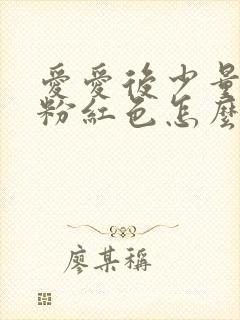 愛愛後少量
粉紅色怎麼
廖某稱